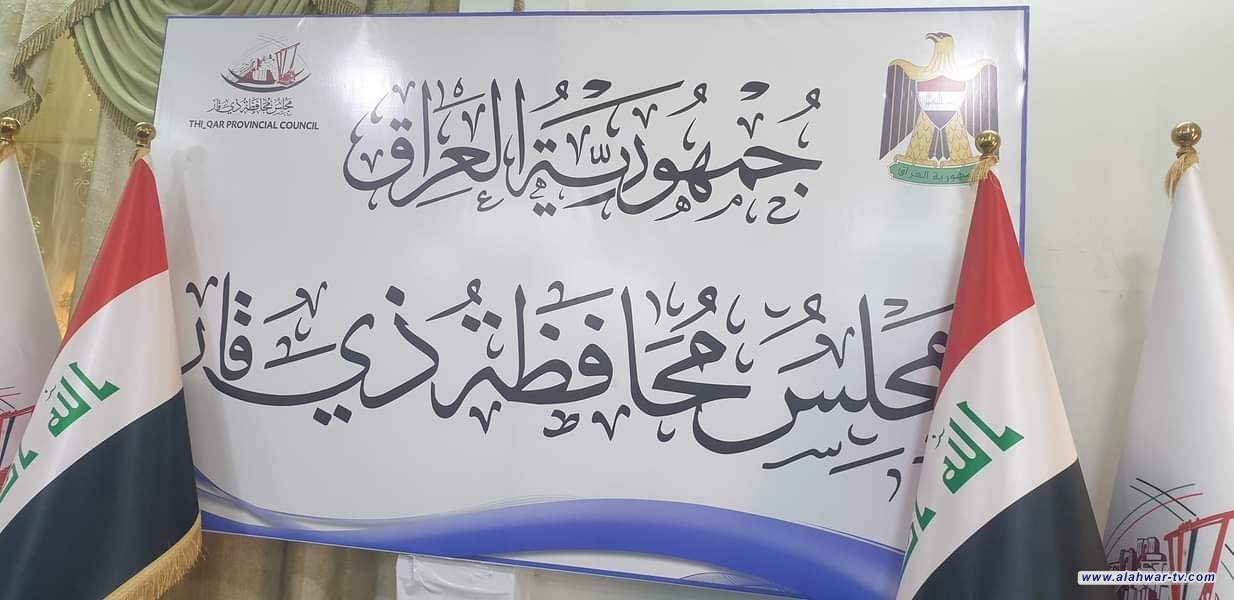 مجلس محافظة ذي قار
THI_QAR PROVINCIAL COUNCIL
جُمْهُورِيَّةُ العِرَاق
جمهورية العراق
مَجلِسُ مُحَافَظَةُ ذي قار
الله
الله
www.alahwar-tv.com